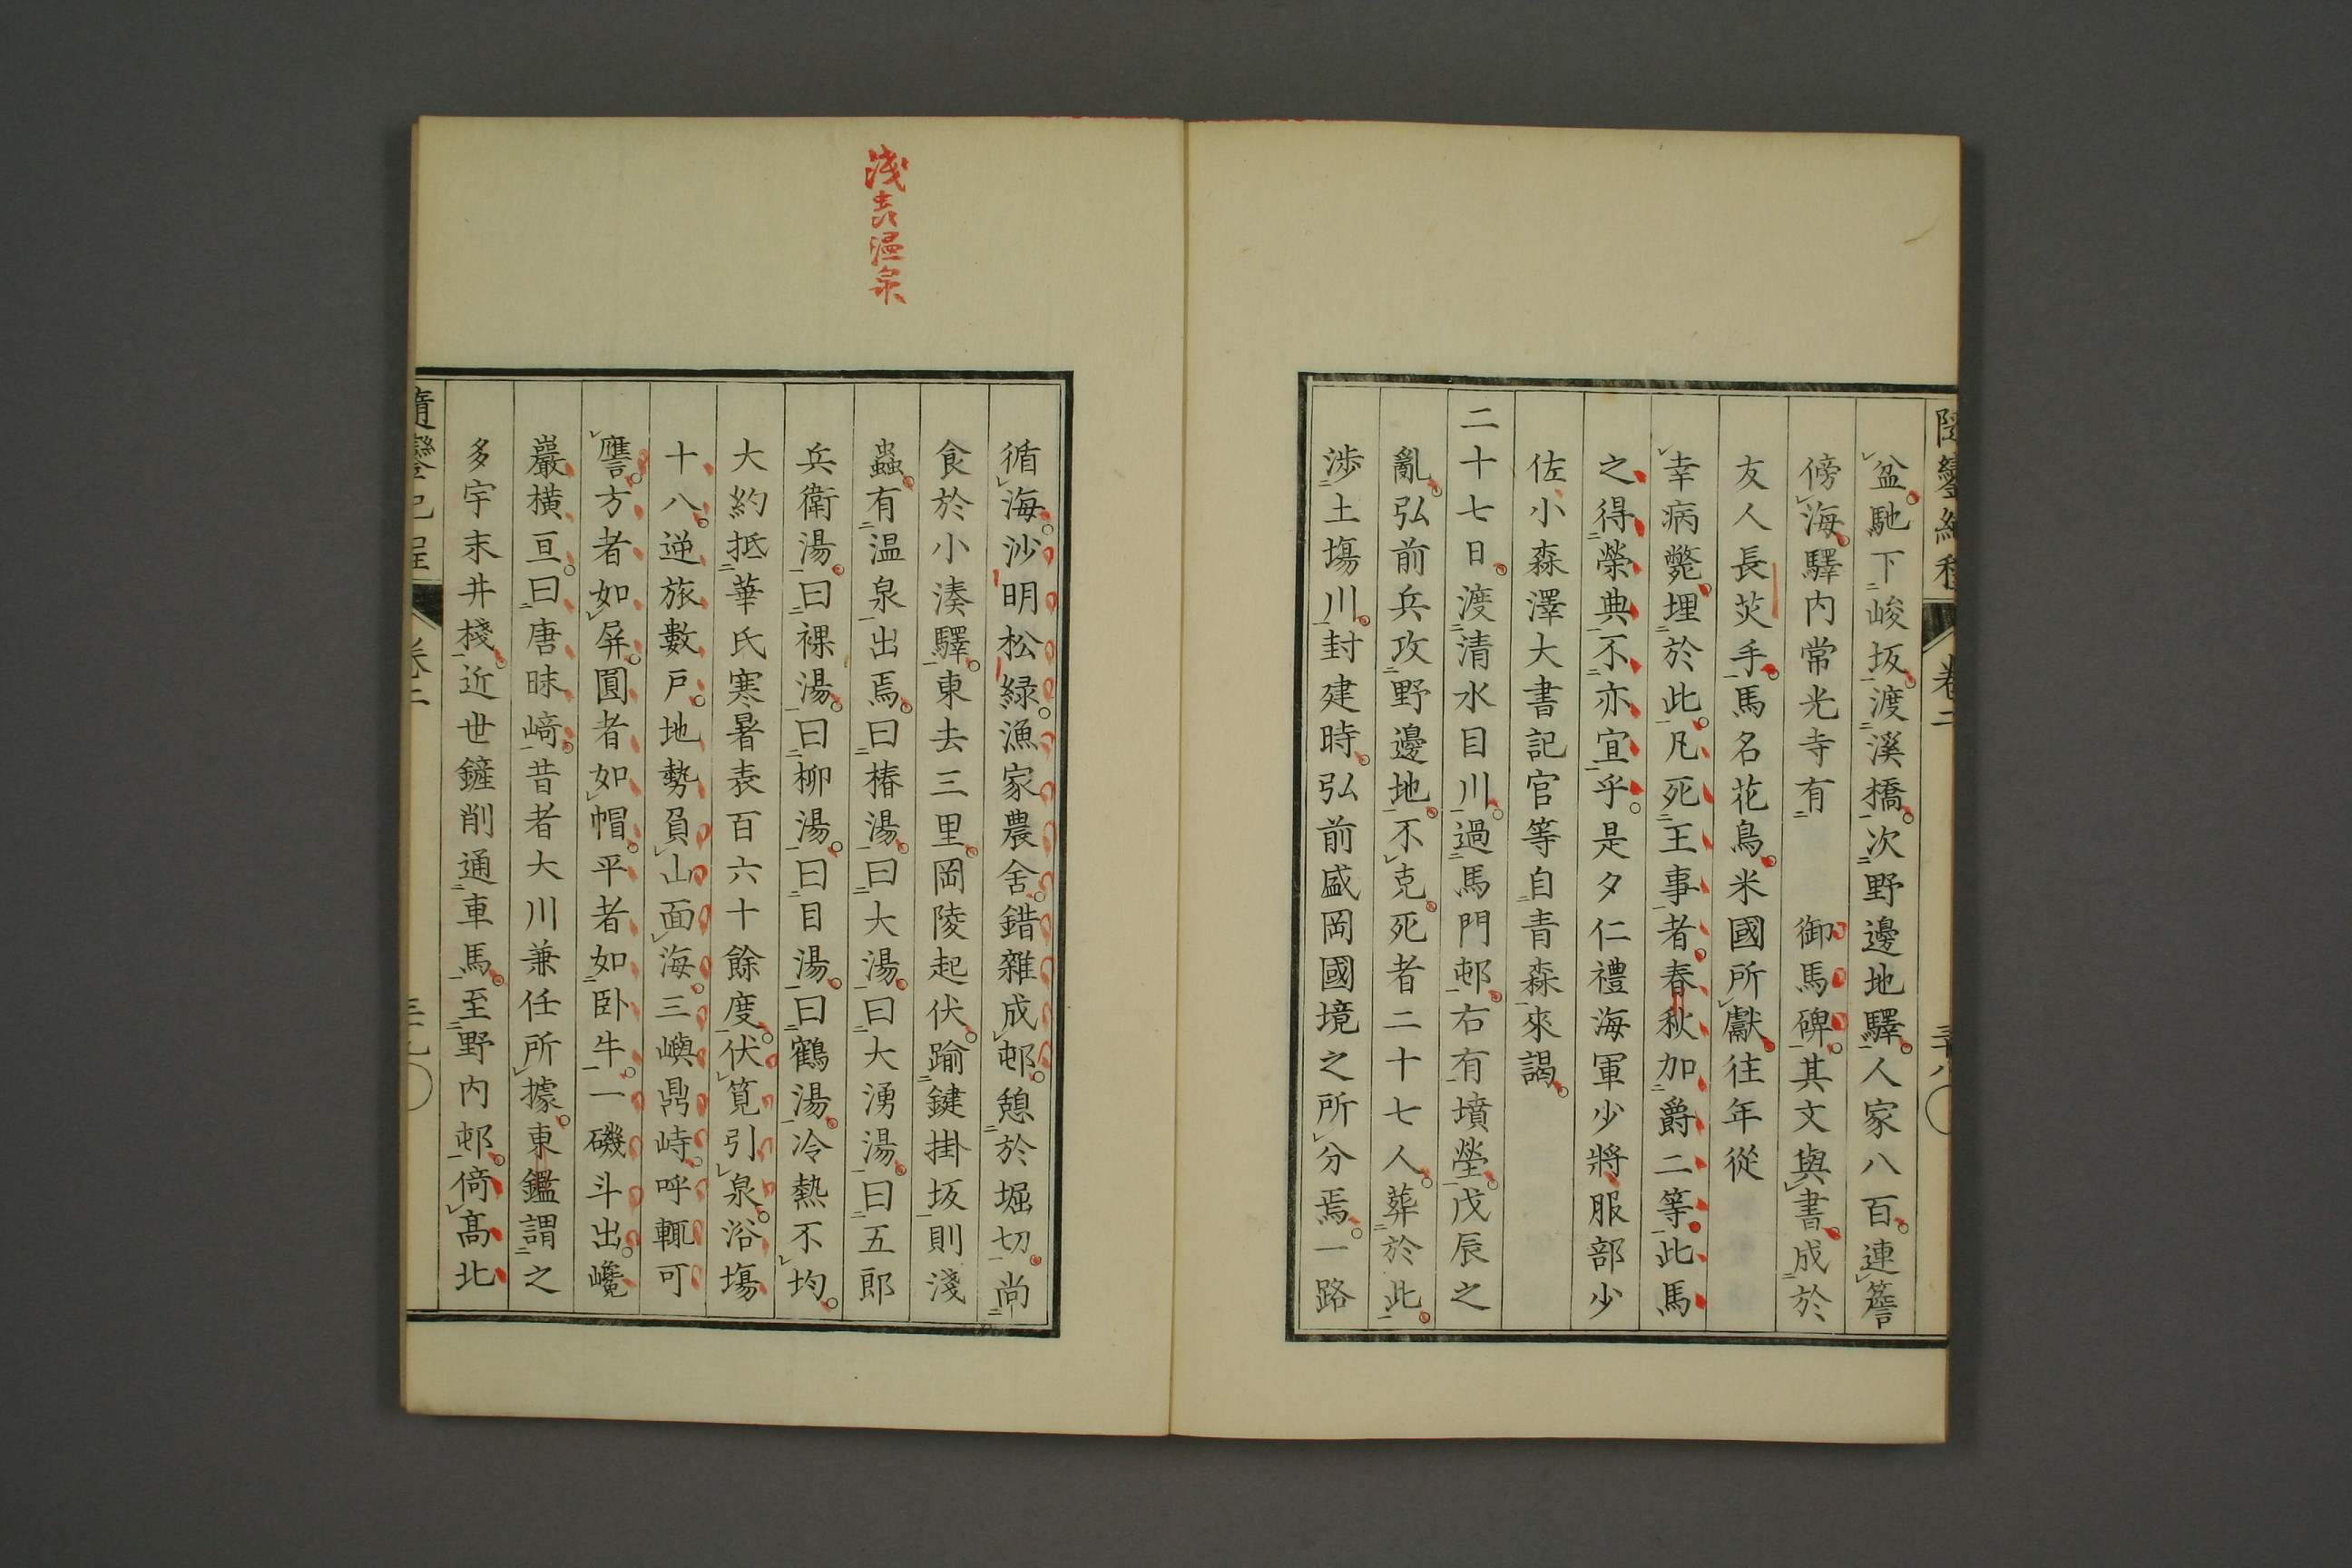 盆馳下峻坂渡溪橋次野邊地驛人家八百連簷
傍海驛内常光寺有御馬碑其文與書成於
友人長炗手馬名花鳥米國所獻往年從
幸病斃埋於此凡死王事者春秋加爵二等此馬
之得榮典不亦宜乎是夕仁禮海軍少將服部少
佐小森澤大書記官等自青森來謁
二十七日渡清水目川過馬門邨右有墳塋戊辰之
亂弘前兵攻野邊地不克死者二十七人葬於此
渉土塲川封建時弘前盛岡國境之所分焉一路
卷二
淺虫温泉
循海沙明松緑漁家農舍錯雜成邨憩於堀切尚
食於小湊驛東去三里岡陵起伏踰鍵掛坂則淺
蟲有温泉出焉曰椿湯曰大湯曰大湧湯曰五郎
兵衛湯曰裸湯曰柳湯曰目湯曰鶴湯冷熱不均
大約抵華氏寒暑表百六十餘度伏筧引泉浴塲
十八逆旅數戸地勢負山面海三嶼鼎峙呼輒可
譍方者如屏圓者如帽平者如卧牛一磯斗出巉
巖橫亘曰唐昧﨑昔者大川兼任所據東鑑謂之
多宇末井棧近世鏟削通車馬至野内邨倚髙北